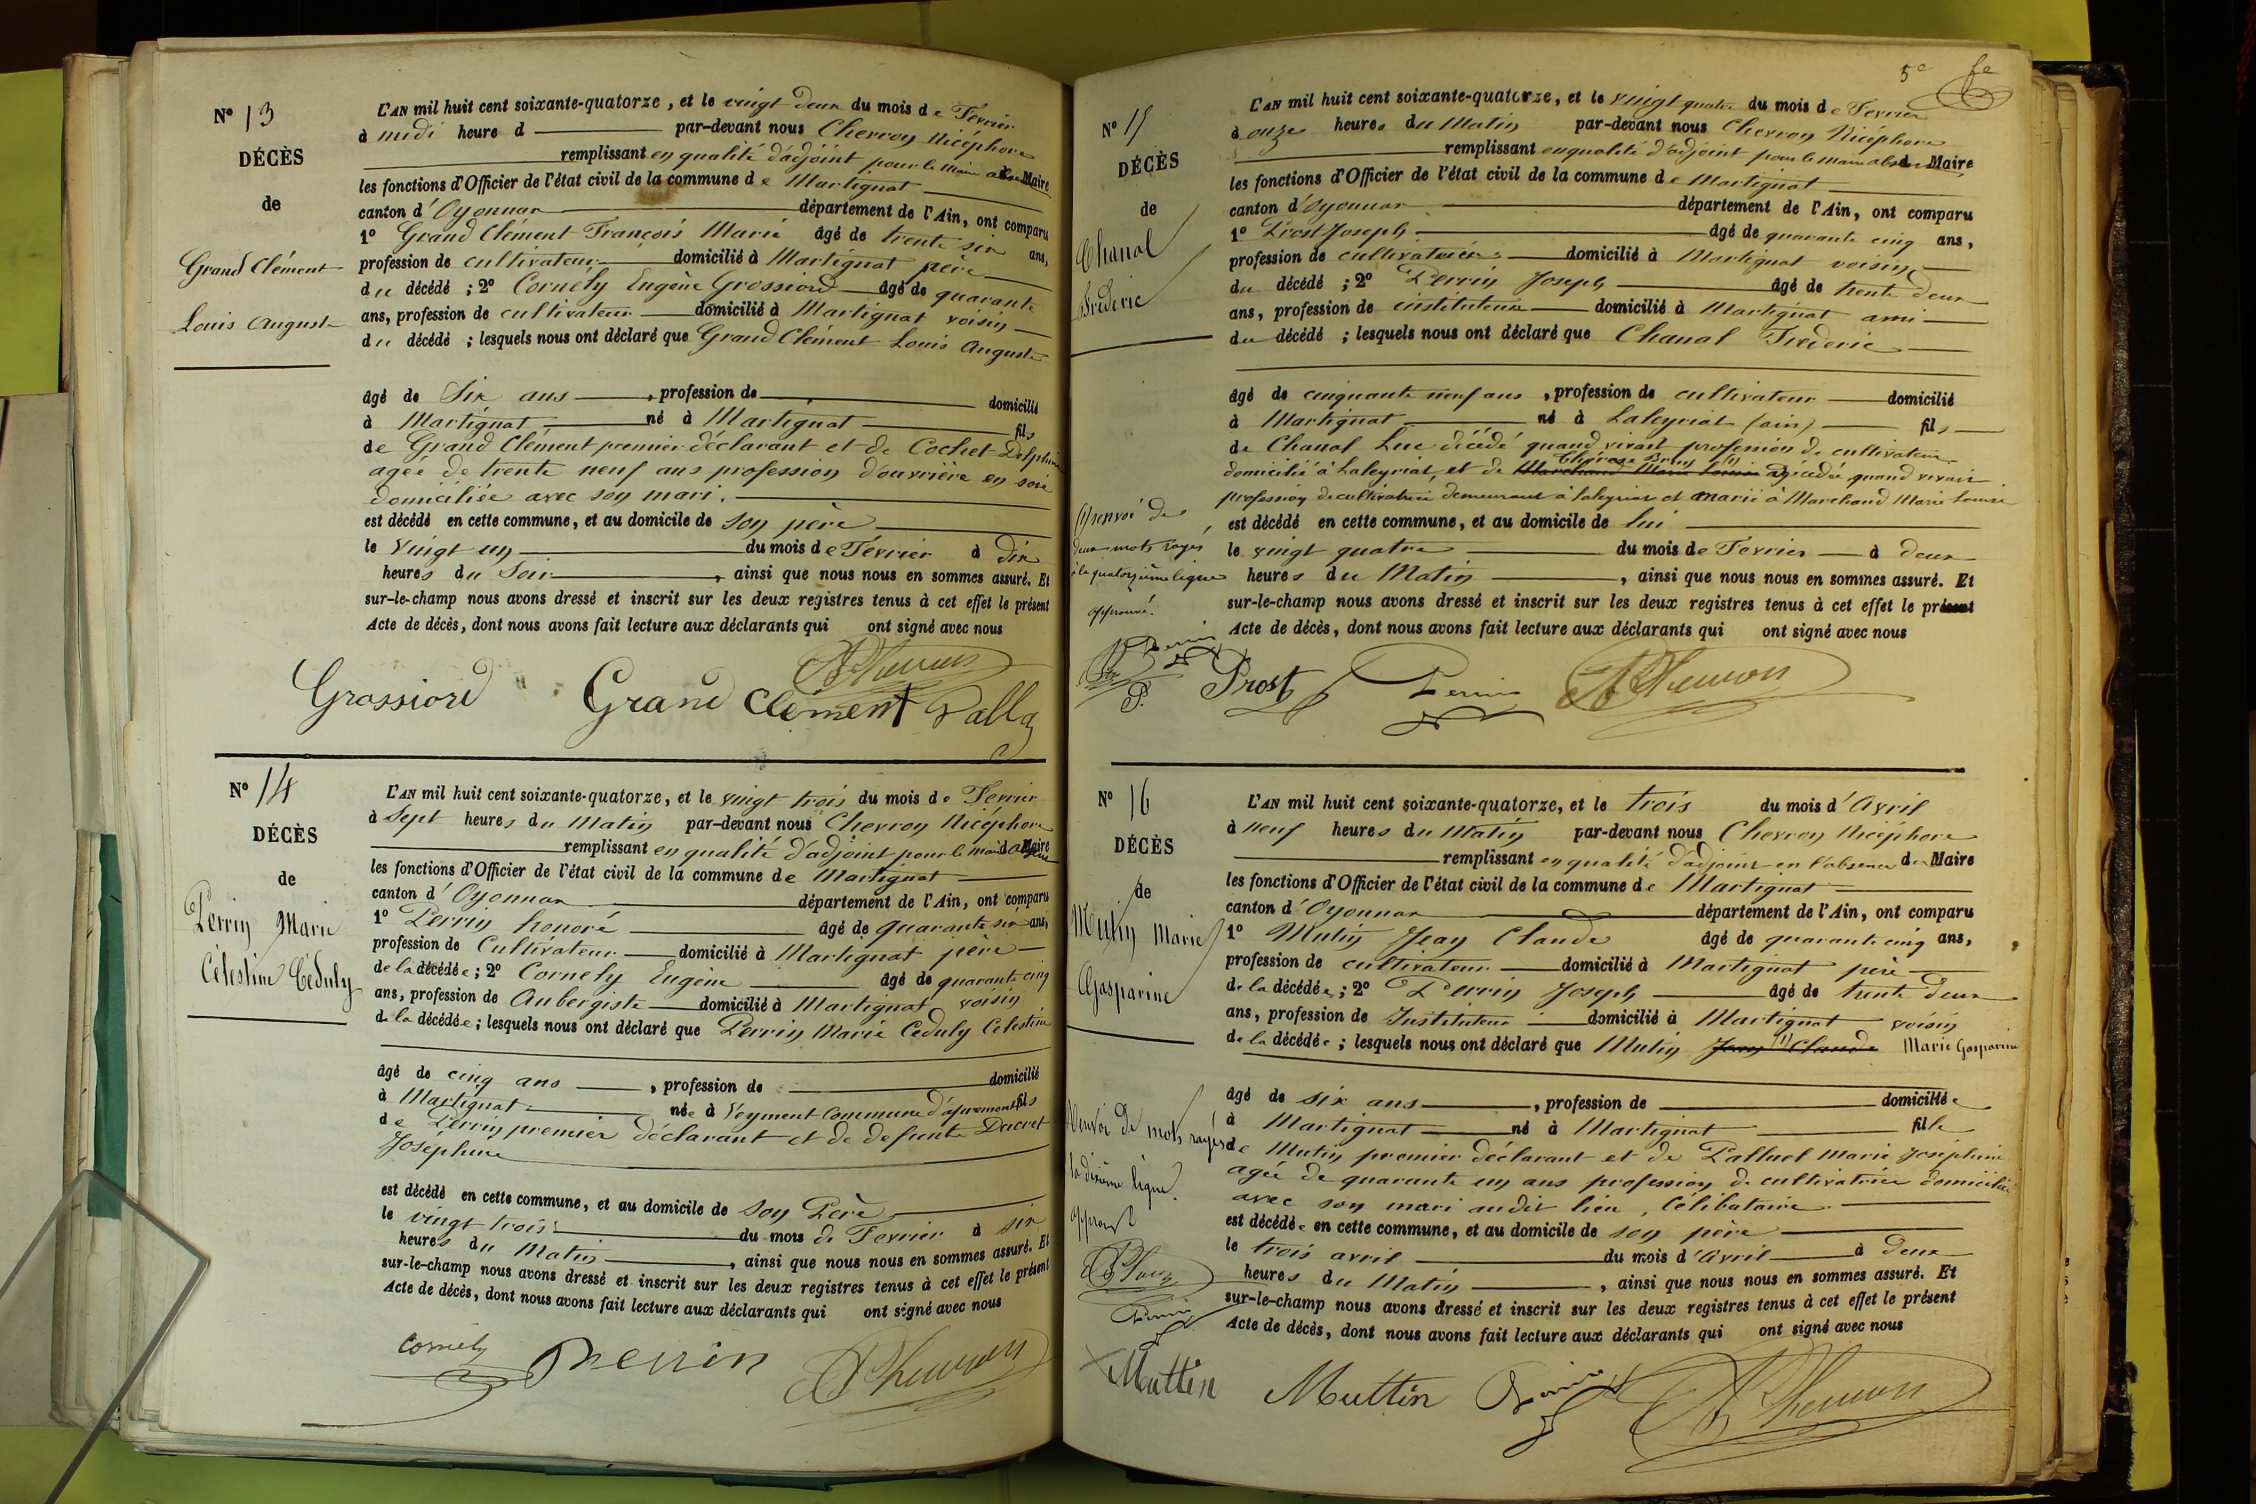 N° 13
DÉCÈS
de
Grand Clément
Louis Auguste
L'AN mil huit cent soixante-quatorze, et le vingt deux du mois de Fevrier
à midi heure d par-devant nous Chevron Nicéphore
remplissant en qualité d'adjoint pour le Maire absent Maire
les fonctions d'Officier de l'état civil de la commune de Martignat
canton d'Oyonnax département de l'Ain, ont comparu
1° Grand Clément François Marie âgé de trente six ans,
profession de cultivateur domicilié à Martignat père
du décédé ; 2° Cornély Eugène Grossiord âgé de quarante
ans, profession de cultivateur domicilié à Martignat voisin
du décédé ; lesquels nous ont déclaré que Grand Clément Louis Auguste
âgé de Six ans, profession de domicilié
à Martignat né à Martignat fils
de Grand Clément premier déclarant et de Cochet Delphine
agée de trente neuf ans profession d'ouvrière en soie
domiciliée avec son mari.
est décédé en cette commune, et au domicile de son père
le Vingt un du mois de Fevrier à dix
heures du Soir, ainsi que nous nous en sommes assuré. Et
sur-le-champ nous avons dressé et inscrit sur les deux registres tenus à cet effet le présent
Acte de décès, dont nous avons fait lecture aux déclarants qui ont signé avec nous
Grossiord Grand Clément
N° 14
DÉCÈS
de
Perrin Marie
Célestine Céduly
L'AN mil huit cent soixante-quatorze, et le vingt trois du mois de Fevrier
à Sept heures du Matin par-devant nous Chevron Nicéphore
remplissant en qualité d'adjoint pour le Maire
les fonctions d'Officier de l'état civil de la commune de Martignat
canton d'Oyonnax département de l'Ain, ont comparu
1° Perrin honoré âgé de quarante six ans,
profession de Cultivateur domicilié à Martignat père
de la décédée ; 2° Cornély Eugène âgé de quarante cinq
ans, profession de Aubergiste domicilié à Martignat voisin
de la décédée ; lesquels nous ont déclaré que Perrin Marie Ceduly Célestine
âgé de cinq ans, profession de domicilié
à Martignat née à Veyment Commune d'apremont fils
de Perrin premier déclarant et de defunte Ducret
Joséphine
est décédé en cette commune, et au domicile de son Père
le vingt trois du mois de Fevrier à six
heures du Matin, ainsi que nous nous en sommes assuré. Et
sur-le-champ nous avons dressé et inscrit sur les deux registres tenus à cet effet le présent
Acte de décès, dont nous avons fait lecture aux déclarants qui ont signé avec nous
Cornély Perrin
5e
N° 15
DÉCÈS
de
Chanal
Fréderic
L'AN mil huit cent soixante-quatorze, et le vingt quatre du mois de Fevrier
à onze heures du Matin par-devant nous Chevron Nicéphore
remplissant en qualité d'adjoint pour le maire absent Maire
les fonctions d'Officier de l'état civil de la commune de Martignat
canton d'Oyonnax département de l'Ain, ont comparu
1° Prost Joseph âgé de quarante cinq ans,
profession de cultivateur domicilié à Martignat voisin
du décédé ; 2° Perrin Joseph âgé de trente deux
ans, profession de instituteur domicilié à Martignat ami
du décédé ; lesquels nous ont déclaré que Chanal Frederic
âgé de cinquante neuf ans, profession de cultivateur domicilié
à Martignat né à Laleyriat (ain) fils
de Chanal Luc décédé quand vivait profession de cultivateur
Thérèse Brun (1)
domicilié à Laleyriat, et de Marchand Marie Louise décédée quand vivait
profession de cultivatrice demeurant à Laleyriat et marié à Marchand Marie Louise
est décédé en cette commune, et au domicile de lui
le vingt quatre du mois de Fevrier à deux
heures du Matin, ainsi que nous nous en sommes assuré. Et
sur-le-champ nous avons dressé et inscrit sur les deux registres tenus à cet effet le présent
Acte de décès, dont nous avons fait lecture aux déclarants qui ont signé avec nous
(1) renvoi de
deux mots rayés
à la quatorzième ligne
approuvé.
Perrin
P.
Prost Perrin
N° 16
DÉCÈS
de
Mutin Marie
Gasparine
L'AN mil huit cent soixante-quatorze, et le trois du mois d'Avril
à neuf heures du Matin par-devant nous Chevron Nicéphore
remplissant en qualité d'adjoint en l'absence du Maire
les fonctions d'Officier de l'état civil de la commune de Martignat
canton d'Oyonnax département de l'Ain, ont comparu
1° Mutin Jean Claude âgé de quarante cinq ans,
profession de cultivateur domicilié à Martignat père
de la décédée ; 2° Perrin Joseph âgé de trente deux
ans, profession de Instituteur domicilié à Martignat voisin
de la décédée ; lesquels nous ont déclaré que Mutin Jean (1) Claude Marie Gasparine
âgé de six ans, profession de domiciliée
à Martignat né à Martignat fille
de Mutin premier déclarant et de Palluel Marie Joséphine
agée de quarante un ans profession de cultivatrice domiciliée
avec son mari audit lieu, Célibataire
est décédée en cette commune, et au domicile de son père
le trois avril du mois d'Avril à deux
heures du Matin, ainsi que nous nous en sommes assuré. Et
sur-le-champ nous avons dressé et inscrit sur les deux registres tenus à cet effet le présent
Acte de décès, dont nous avons fait lecture aux déclarants qui ont signé avec nous
Renvoi de mots rayés
la dixième ligne.
approuvé
Perrin
Muttin
Muttin Perrin